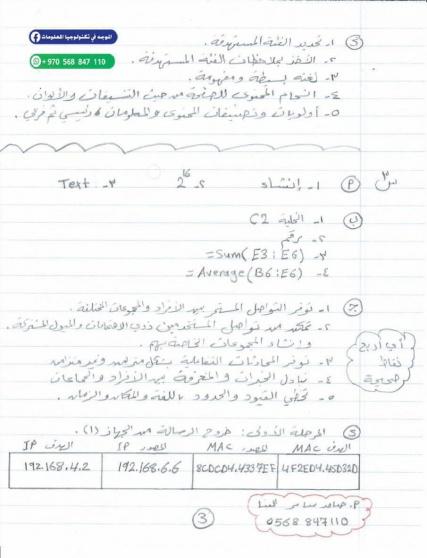 الموجه في تكنولوجيا المعلومات
+ 970 568 847 110
١- تحديد الفئة المستهدفة.
٢- الأخذ بملاحظات الفئة المستهدفة.
٣- لغته بسيطة ومفهومة.
٤- انسجام المحتوى للصفحة من حيث التنسيقات والألوان.
٥- أولويات وتصنيفات المحتوى والمعلومات، رئيسي ثم فرعي.
س٣ P ١- إنشاء ٢- 2^16 ٣- Text
ب ١- الخلية C2
٢- رقم
٣- =Sum(E3:E6)
٤- =Average(B6:E6)
ج ١- توفر التواصل المستمر بين الأفراد والمجموعات المختلفة.
٢- تمكن من تواصل المستخدمين ذوي الاهتمامات والميول المشتركة
وإنشاء المجموعات الخاصة بهم.
٣- توفر المحادثات التفاعلية بشكل متزامن وغير متزامن
٤- تبادل الخبرات والمعرفة بين الأفراد والجماعات
٥- تخطي القيود والحدود، اللغة والمكان والزمان.
أي أربع
نقاط
صحيحة
المرحلة الأولى: خروج الرسالة من الجهاز (١).
الهدف MAC المصدر MAC المصدر IP الهدف IP
4F2ED4.45D32D 8CDCD4.4337EF 192.168.6.6 192.168.4.2
0568 847110
3